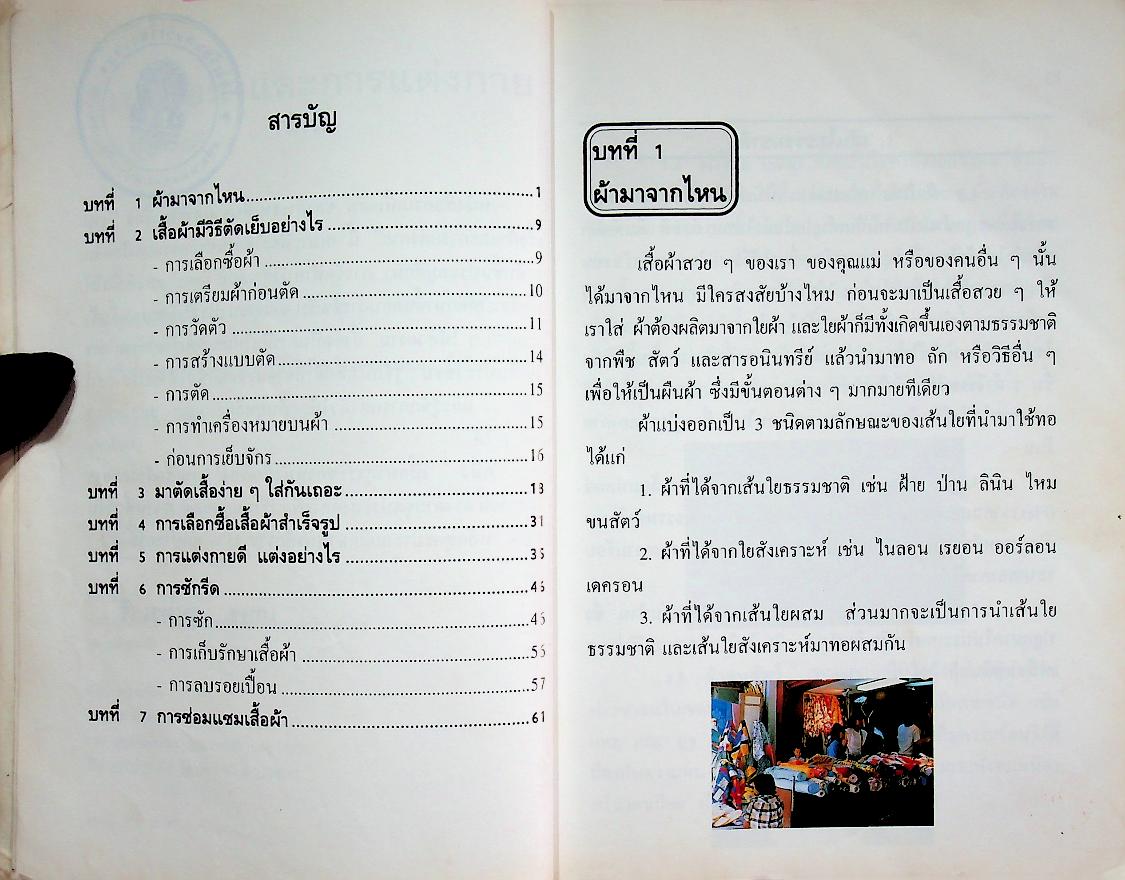 สารบัญ
บทที่ 1 ผ้ามาจากไหน..........1
บทที่ 2 เสื้อผ้ามีวิธีตัดเย็บอย่างไร..........9
- การเลือกซื้อผ้า..........9
- การเตรียมผ้าก่อนตัด..........10
- การวัดตัว..........11
- การสร้างแบบตัด..........14
- การตัด..........15
- การทำเครื่องหมายบนผ้า..........15
- ก่อนการเย็บจักร..........16
บทที่ 3 มาตัดเสื้อง่าย ๆ ใส่กันเถอะ..........
บทที่ 4 การเลือกซื้อเสื้อผ้าสำเร็จรูป..........31
บทที่ 5 การแต่งกายดี แต่งอย่างไร..........
บทที่ 6 การซักรีด..........
- การซัก..........
- การเก็บรักษาเสื้อผ้า..........
- การลบรอยเปื้อน..........57
บทที่ 7 การซ่อมแซมเสื้อผ้า..........61
บทที่ 1
ผ้ามาจากไหน
เสื้อผ้าสวย ๆ ของเรา ของคุณแม่ หรือของคนอื่น ๆ นั้น
ได้มาจากไหน มีใครสงสัยบ้างไหม ก่อนจะมาเป็นเสื้อสวย ๆ ให้
เราใส่ ผ้าต้องผลิตมาจากใยผ้า และใยผ้าก็มีทั้งเกิดขึ้นเองตามธรรมชาติ
จากพืช สัตว์ และสารอนินทรีย์ แล้วนำมาทอ ถัก หรือวิธีอื่น ๆ
เพื่อให้เป็นผืนผ้า ซึ่งมีขั้นตอนต่าง ๆ มากมายทีเดียว
ผ้าแบ่งออกเป็น 3 ชนิดตามลักษณะของเส้นใยที่นำมาใช้ทอ
ได้แก่
1. ผ้าที่ได้จากเส้นใยธรรมชาติ เช่น ฝ้าย ป่าน ลินิน ไหม
ขนสัตว์
2. ผ้าที่ได้จากใยสังเคราะห์ เช่น ไนลอน เรยอน ออร์ลอน
เดครอน
3. ผ้าที่ได้จากเส้นใยผสม ส่วนมากจะเป็นการนำเส้นใย
ธรรมชาติ และเส้นใยสังเคราะห์มาทอผสมกัน